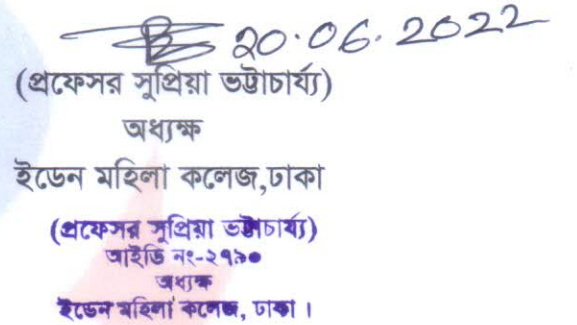 20.06.2022
(প্রফেসর সুপ্রিয়া ভট্টাচার্য্য)
অধ্যক্ষ
ইডেন মহিলা কলেজ,ঢাকা
(প্রফেসর সুপ্রিয়া ভট্টাচার্য্য)
আইডি নং-২৭৯০
অধ্যক্ষ
ইডেন মহিলা কলেজ, ঢাকা।